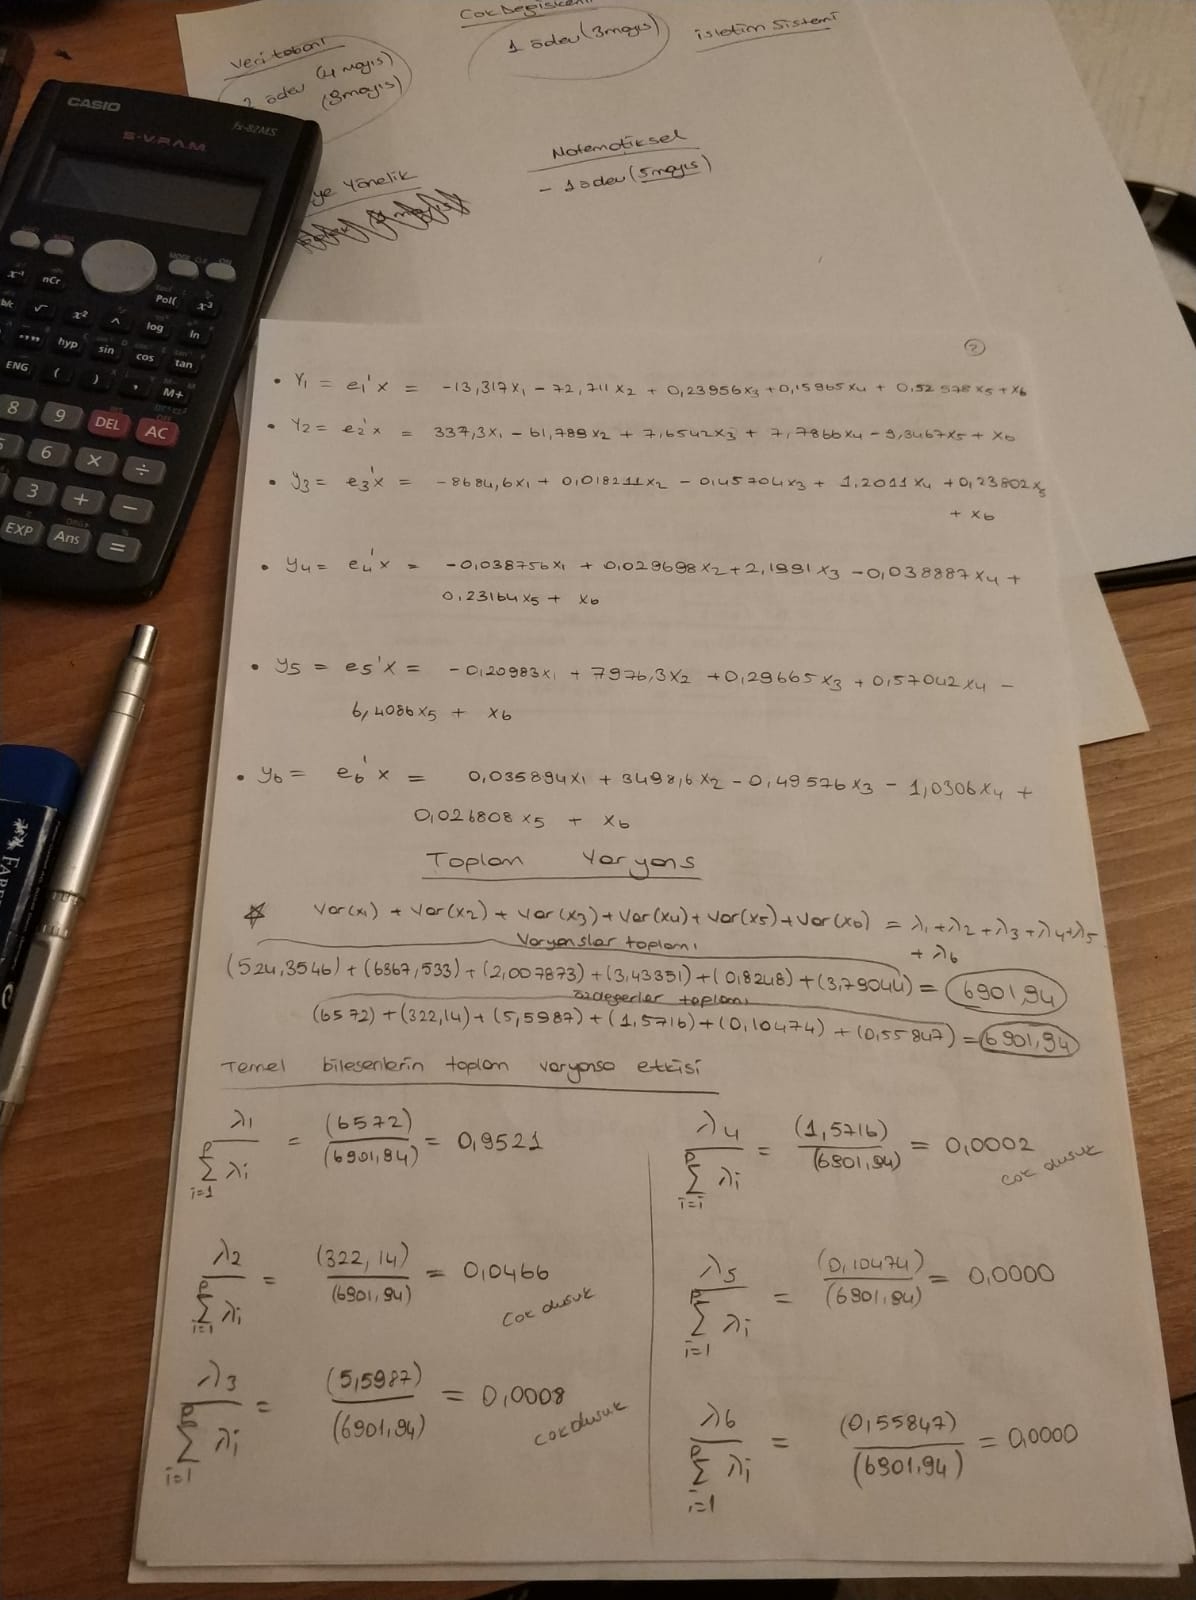 Çok Değişkenli
Veri tabanı
1 ödev (3 mayıs)
işletim Sistemi
2 ödev (4 mayıs)
(8 mayıs)
CASIO
fx-82MS
S-V.P.A.M.
Matematiksel
- 1 ödev (5 mayıs)
ye Yönelik
②
• Y₁ = e₁'x = -13,317x₁ - 72,711x₂ + 0,23956x₃ + 0,15965x₄ + 0,52578x₅ + x₆
• Y₂ = e₂'x = 337,3x₁ - 61,789x₂ + 7,6542x₃ + 7,7866x₄ - 9,3467x₅ + x₆
• y₃ = e₃'x = -8684,6x₁ + 0,018211x₂ - 0,45704x₃ + 1,2011x₄ + 0,23802x₅
+ x₆
• y₄ = e₄'x = -0,038756x₁ + 0,029698x₂ + 2,1991x₃ - 0,038887x₄ +
0,23164x₅ + x₆
• y₅ = e₅'x = -0,20983x₁ + 7976,3x₂ + 0,29665x₃ + 0,57042x₄ -
6,4086x₅ + x₆
• y₆ = e₆'x = 0,035894x₁ + 3498,6x₂ - 0,49576x₃ - 1,0306x₄ +
0,026808x₅ + x₆
Toplam Varyans
Var(x₁) + Var(x₂) + Var(x₃) + Var(x₄) + Var(x₅) + Var(x₆) = λ₁ + λ₂ + λ₃ + λ₄ + λ₅
+ λ₆
Varyanslar toplamı
(524,3546) + (6367,533) + (2,007873) + (3,43351) + (0,8248) + (3,79044) = 6901,94
özdeğerler toplamı
(6572) + (322,14) + (5,5987) + (1,5716) + (0,10474) + (0,55847) = 6901,94
Temel bileşenlerin toplam varyansa etkisi
λ₁ / Σ(i=1, p) λi = (6572) / (6901,94) = 0,9521
λ₂ / Σ(i=1, p) λi = (322,14) / (6901,94) = 0,0466
çok düşük
λ₃ / Σ(i=1, p) λi = (5,5987) / (6901,94) = 0,0008
çok düşük
λ₄ / Σ(i=i, p) λi = (1,5716) / (6901,94) = 0,0002
çok düşük
λ₅ / Σ(i=1, p) λi = (0,10474) / (6901,94) = 0,0000
λ₆ / Σ(i=1, p) λi = (0,55847) / (6901,94) = 0,0000
x⁻¹ nCr Pol( x³
√ x² ^ log ln
hyp sin cos tan
ENG ( ) , M+
8 9 DEL AC
6 × ÷
3 + −
EXP Ans =